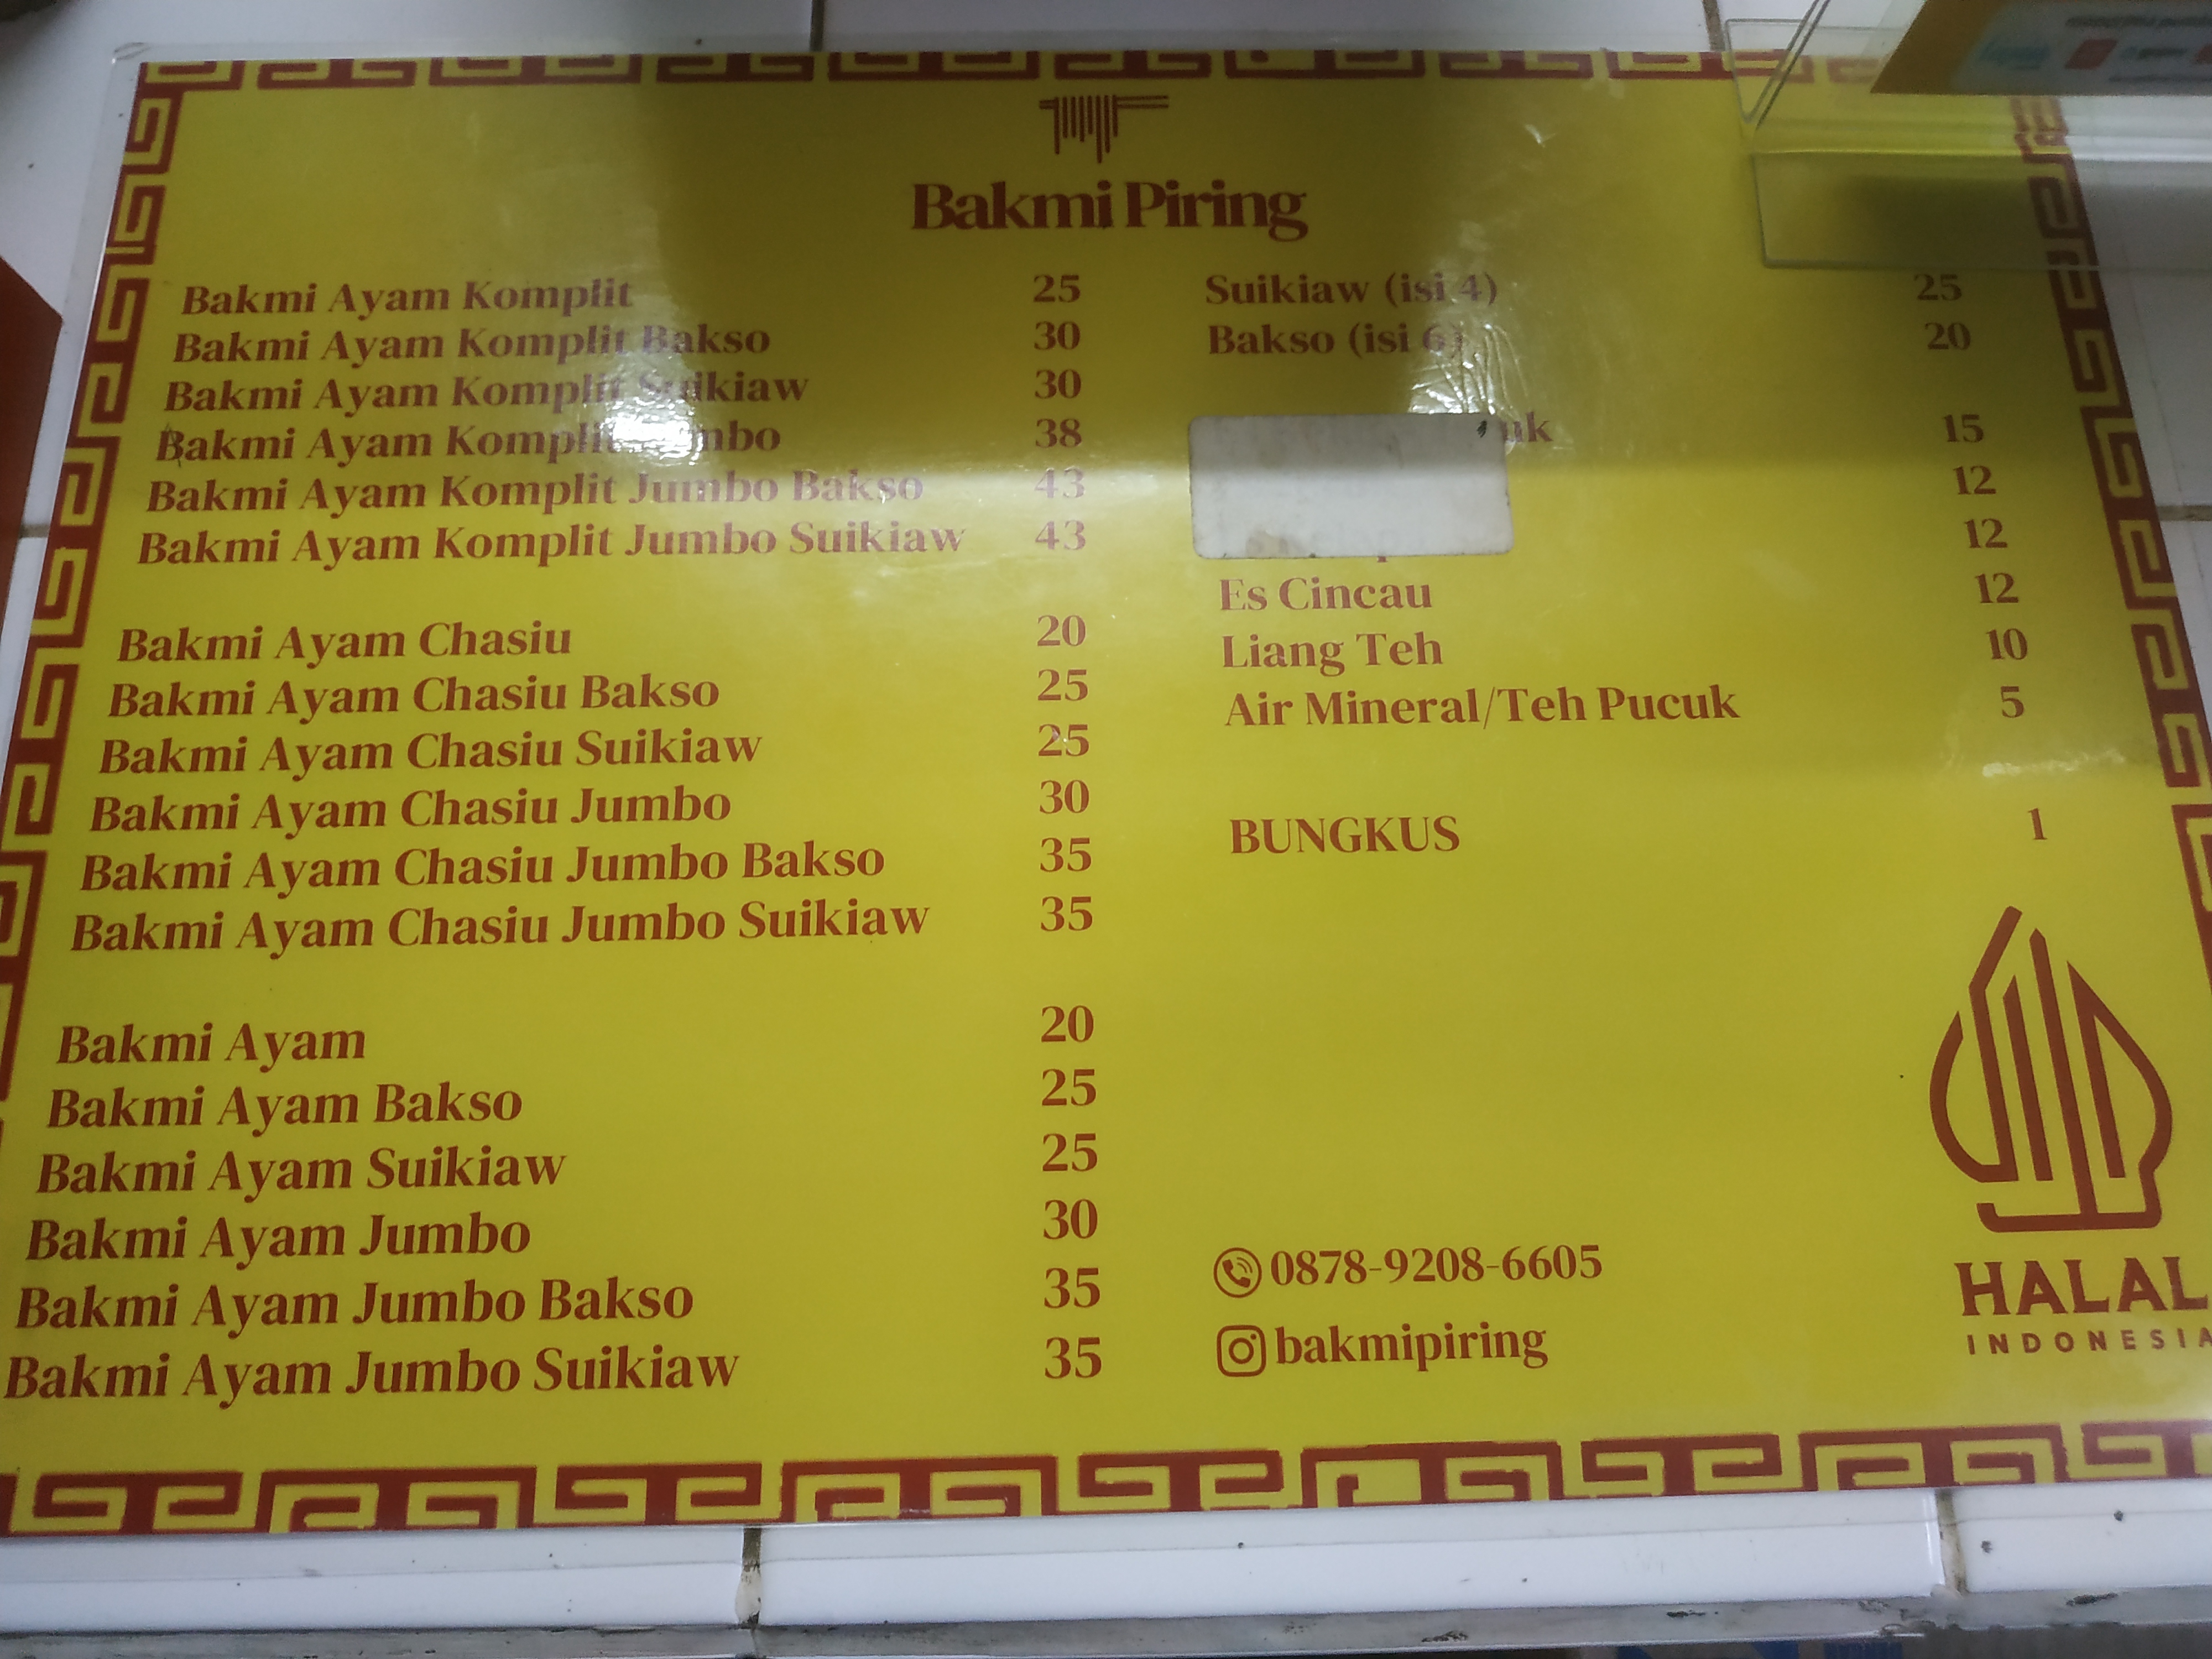 Bakmi Piring
Bakmi Ayam Komplit 25
Bakmi Ayam Komplit Bakso 30
Bakmi Ayam Komplit Suikiaw 30
Bakmi Ayam Komplit Jumbo 38
Bakmi Ayam Komplit Jumbo Bakso 43
Bakmi Ayam Komplit Jumbo Suikiaw 43
Bakmi Ayam Chasiu 20
Bakmi Ayam Chasiu Bakso 25
Bakmi Ayam Chasiu Suikiaw 25
Bakmi Ayam Chasiu Jumbo 30
Bakmi Ayam Chasiu Jumbo Bakso 35
Bakmi Ayam Chasiu Jumbo Suikiaw 35
Bakmi Ayam 20
Bakmi Ayam Bakso 25
Bakmi Ayam Suikiaw 25
Bakmi Ayam Jumbo 30
Bakmi Ayam Jumbo Bakso 35
Bakmi Ayam Jumbo Suikiaw 35
Suikiaw (isi 4) 25
Bakso (isi 6) 20
15
12
12
Es Cincau 12
Liang Teh 10
Air Mineral/Teh Pucuk 5
BUNGKUS 1
0878-9208-6605
bakmipiring
HALAL
INDONESIA